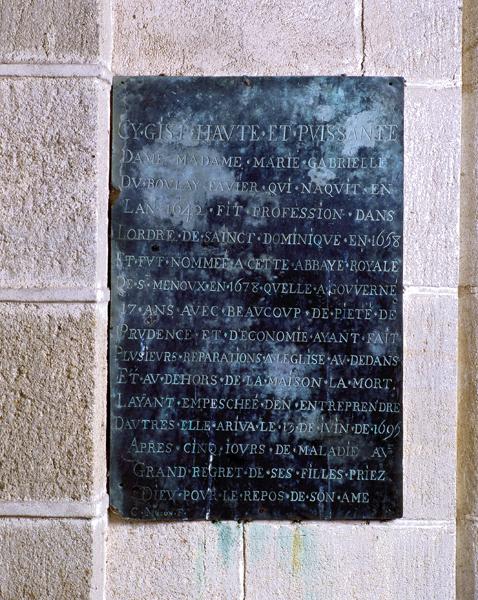 CY·GIST·HAVTE·ET·PVISSANTE
DAME·MADAME·MARIE·GABRIELLE
DV·BOVLAY·FAVIER·QVI·NAQVIT·EN
LAN·1642·FIT·PROFESSION·DANS
LORDRE·DE·SAINCT·DOMINIQVE·EN·1658
ET·FVT·NOMMEÉ·A·CETTE·ABBAYE·ROYALE
DE·S·MENOVX·EN·1678·QVELLE·A·GOVVERNE
17·ANS·AVEC·BEAVCOVP·DE·PIETÉ·DE
PRVDENCE·ET·D'ECONOMIE·AYANT·FAIT
PLVSIEVRS·REPARATIONS·A·LEGLISE·AV·DEDANS
ET·AV·DEHORS·DE·LA·MAISON·LA·MORT,
LAYANT·EMPESCHEÉ·DEN·ENTREPRENDRE
DAVTRES·ELLE·ARIVA·LE·13·DE·IVIN·DE·1695
APRES·CINQ·IOVRS·DE·MALADIE·AV
GRAND·REGRET·DE·SES·FILLES·PRIEZ
DIEV·POVR·LE·REPOS·DE·SON·AME